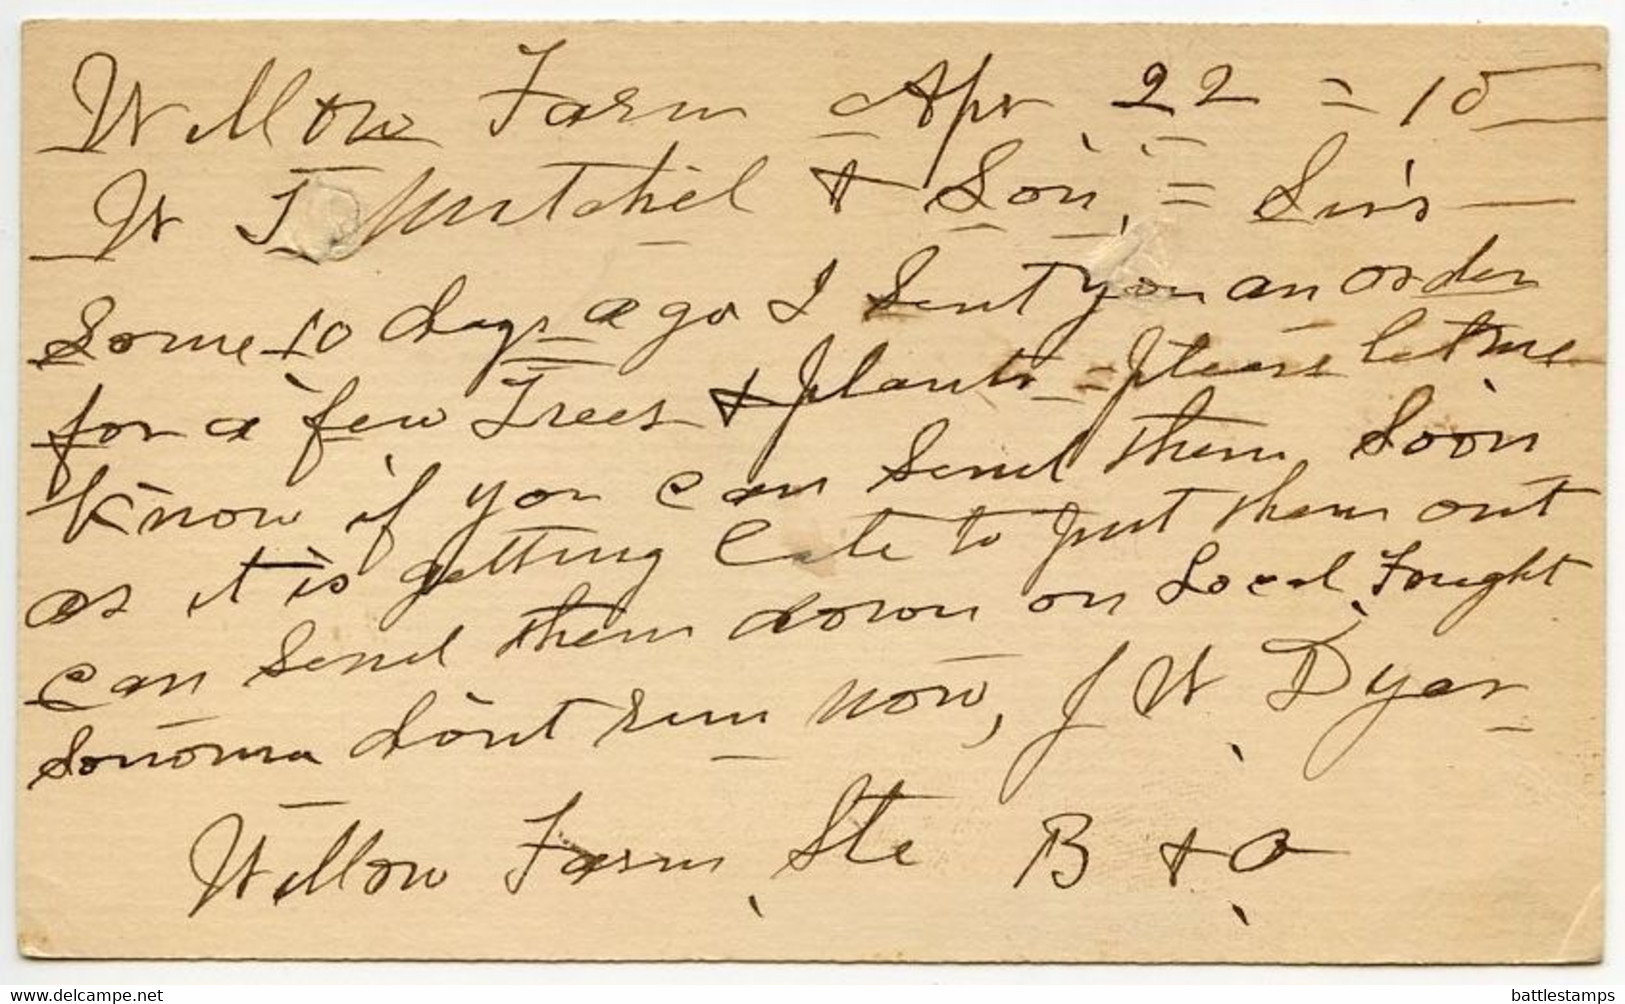 Willow Farm Apr 22 = 10
W T Mitchel & Son, = Sirs
Some 10 days ago I sent you an order
for a few Trees & plants = please let me
Know if you can send them soon
as it is getting late to put them out
can send them down on Local Frught
Sonoma dont run now, J W Dyar
Willow Farm, Sta B & O
battlestamps